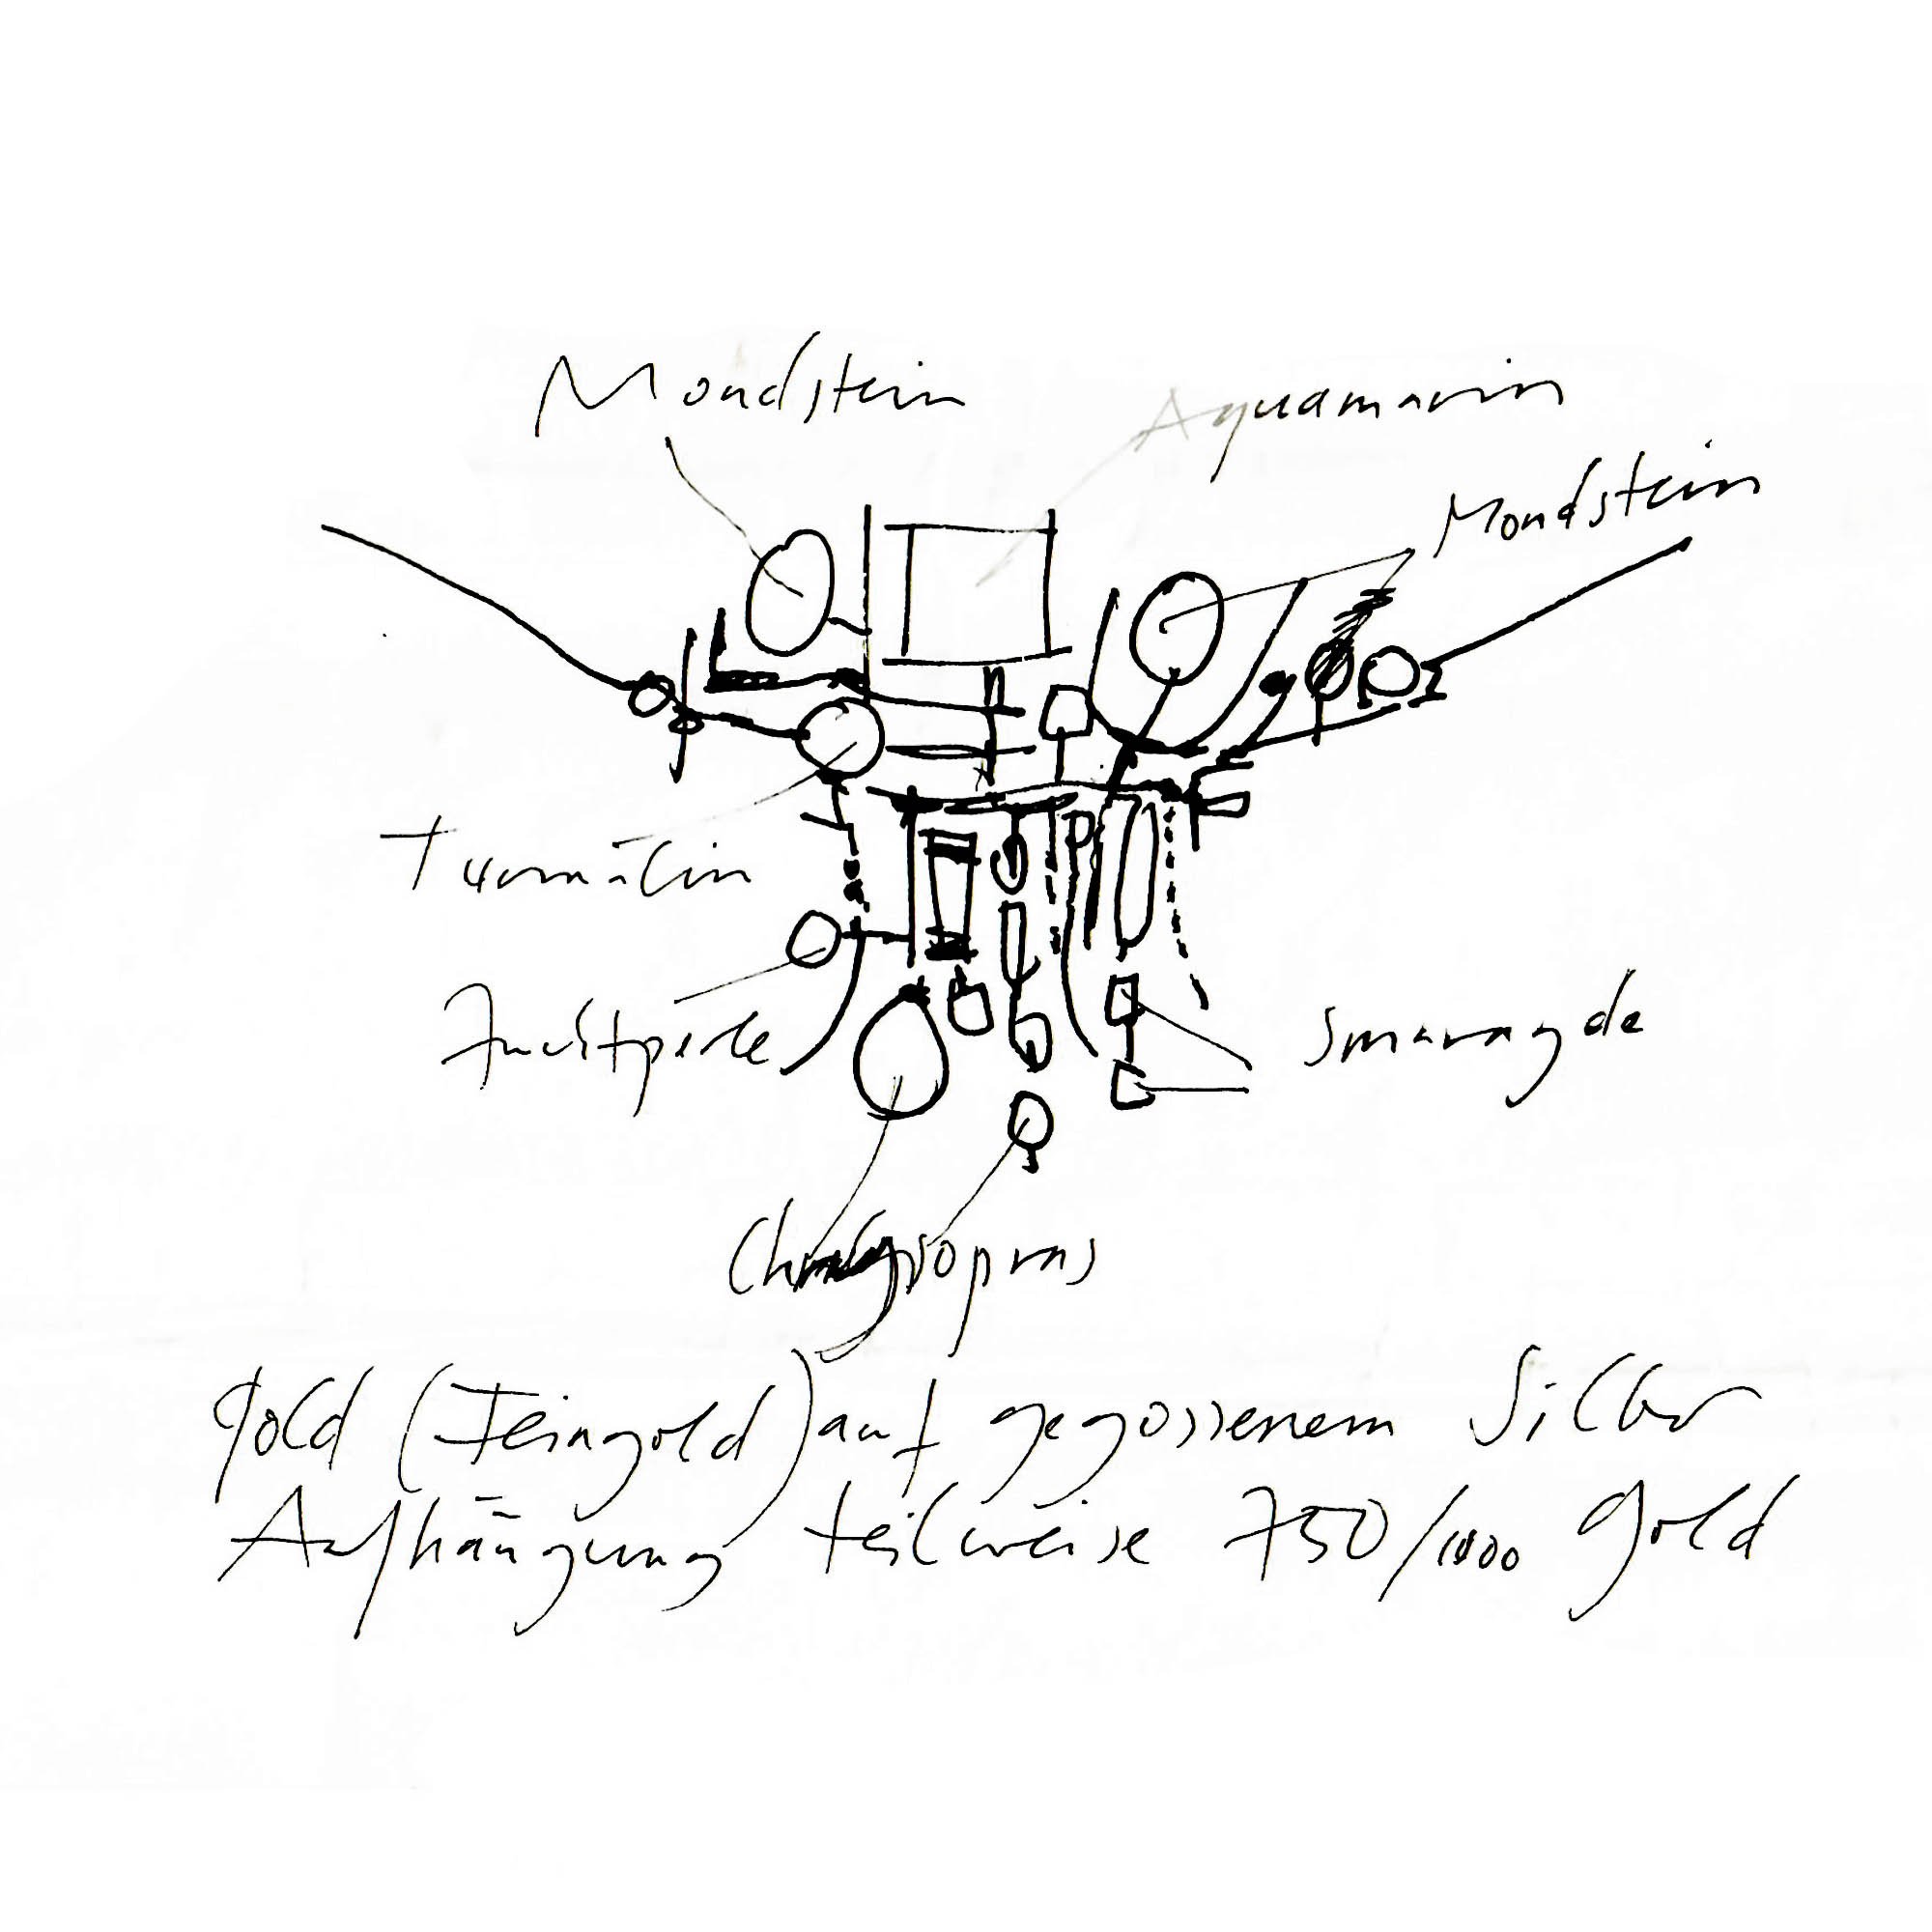 Mondstein
Aquamarin
Mondstein
Turmalin
Zuchtperle
Smaragde
Chrysopras
Gold (Feingold) auf gegossenem Silber
Aufhängung teilweise 750/1000 Gold